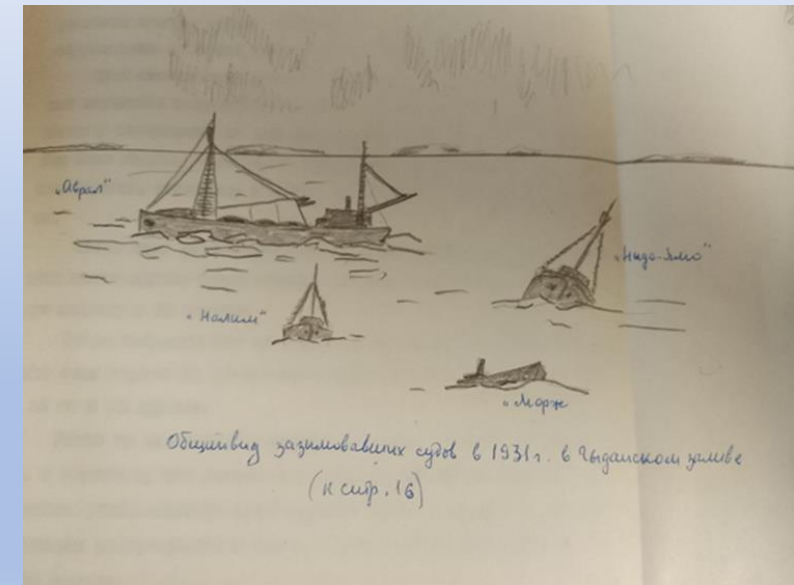 „Аврал"
„Ныдо-Ямо"
„Налим"
„Морж
Общий вид зазимовавших судов в 1931г. в Гыданском заливе
(к стр. 16)